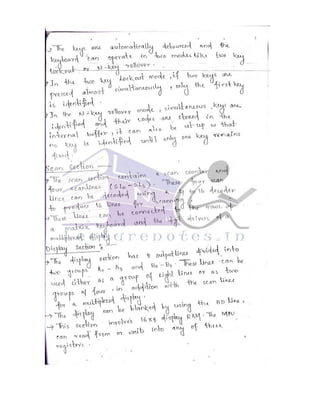 → The keys are automatically debounced and the
keyboard can operate in two modes like two key
lockout or N-key rollover.
→ In the two key lockout mode, if two keys are
pressed almost simultaneously, only the first key
is identified.
→ In the N-key rollover mode, simultaneous key are
identified and their codes are stored in the
internal buffer, it can also be set-up so that
no key is identified until only one key remains
Scan section
→ The scan section contains a scan counter and
four scanlines (SL0 - SL3). These four scan
lines can be decoded using a 4 to 16 decoder
to produce 16 lines for scanning
→ These lines can be connected
a matrix keyboard and the drivers of
multiplexed display
Display section :
→ The display section has 8 output lines divided into
two groups A0 - A3 and B0 - B3. These lines can be
used either as a group of eight lines or as two
groups of four, in addition with the scan lines
for a multiplexed display.
→ The display can be blanked by using the BD line.
→ This section involves 16x8 display RAM. The MPU
can read from or write into any of these
registers.